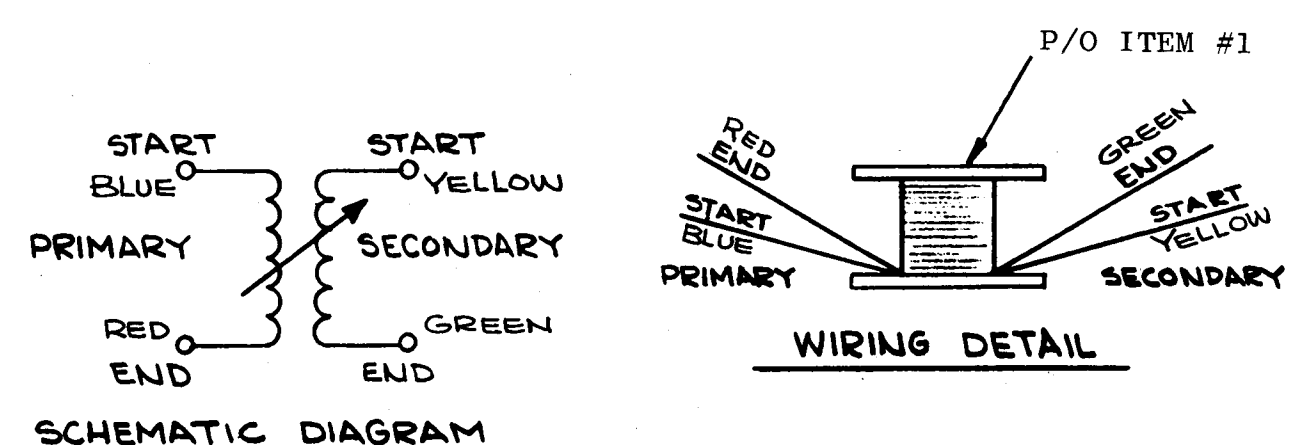 START
BLUE
PRIMARY
RED
END
START
YELLOW
SECONDARY
GREEN
END
SCHEMATIC DIAGRAM
P/O ITEM #1
RED
END
START
BLUE
PRIMARY
GREEN
END
START
YELLOW
SECONDARY
WIRING DETAIL